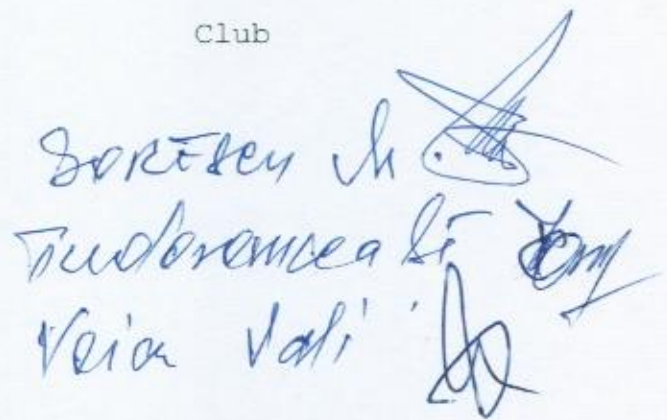 Club
SORESCU M
Tudorancea St
Voicu Vali